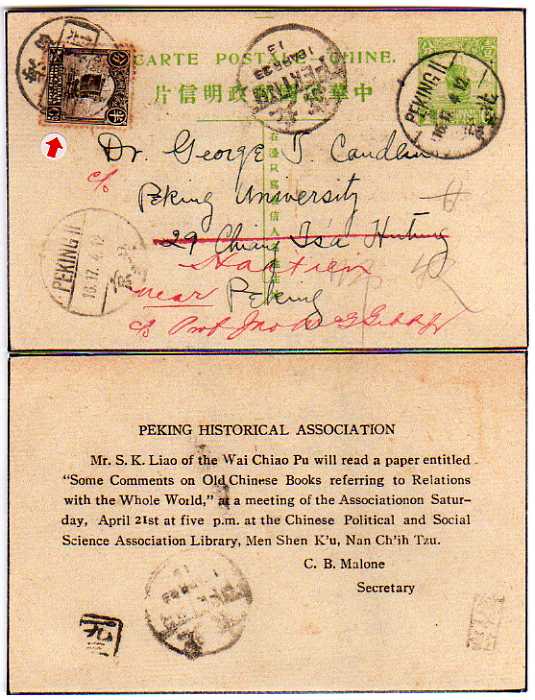 CARTE POSTALE CHINE.
中華民國郵政明信片
PEKING
PEKING II
16.17.4.12
Dr. George T. Candlin
c/o
Peking University
29 Chian Tsa Hutung
Haitien
near Peking
c/o Prof
PEKING II
16.17.4.12
PEKING HISTORICAL ASSOCIATION
Mr. S. K. Liao of the Wai Chiao Pu will read a paper entitled
“Some Comments on Old Chinese Books referring to Relations
with the Whole World,” at a meeting of the Associationon Satur-
day, April 21st at five p.m. at the Chinese Political and Social
Science Association Library, Men Shen K’u, Nan Ch’ih Tzu.
C. B. Malone
Secretary